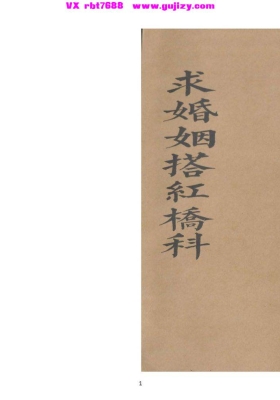 VX rbt7688 www.gujizy.com
求婚姻搭紅橋科
1